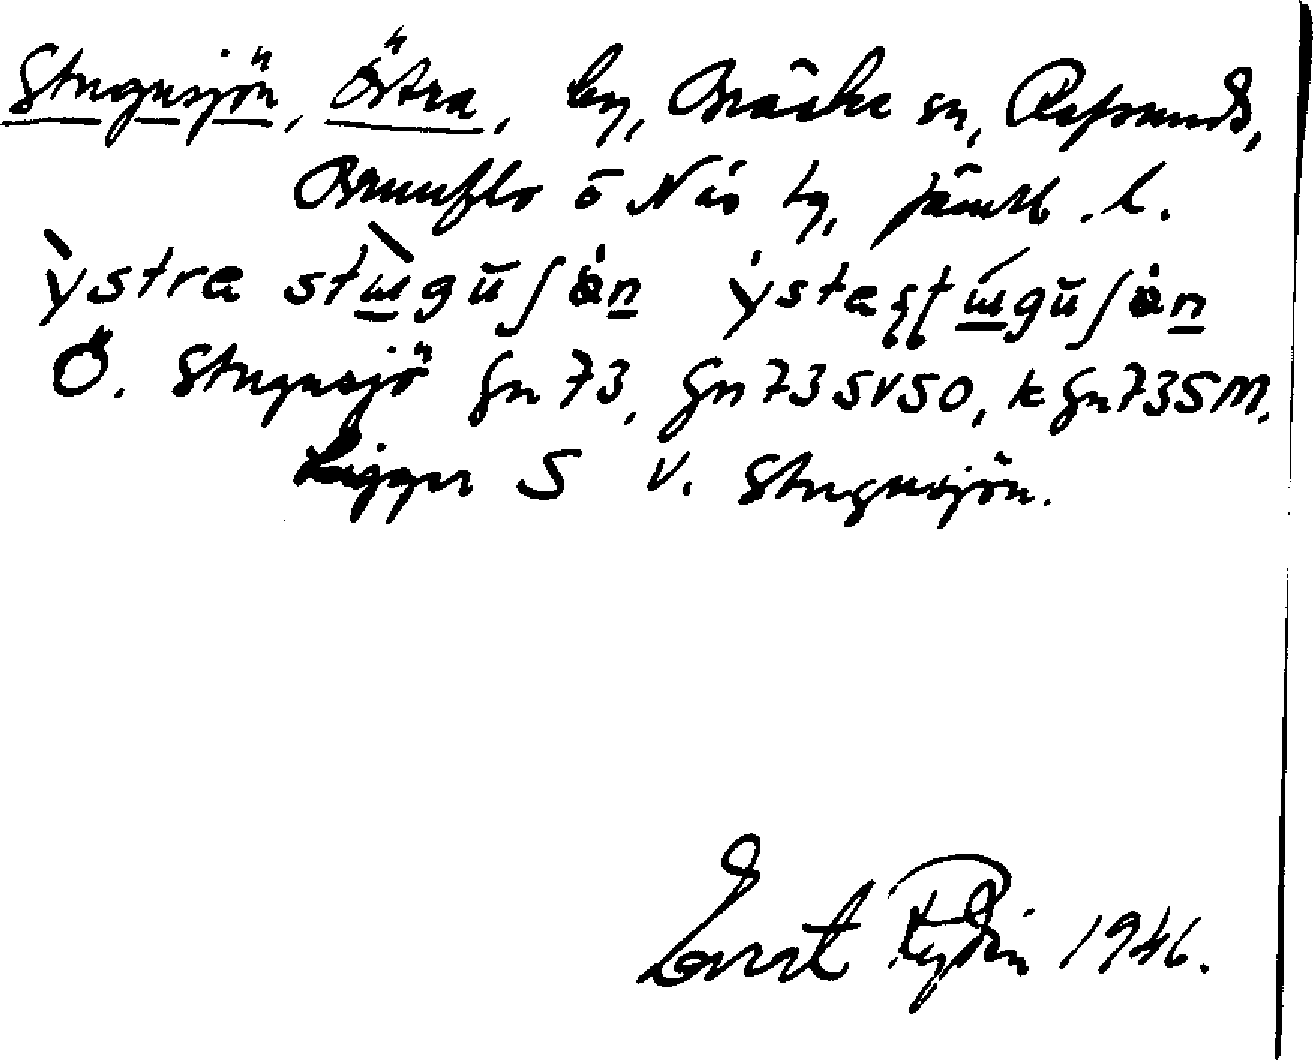 Stugusjön, Östra, by, Bräcke sn, Refsunds,
Brunflo o Näs tg, Jämtl. l.
ỳstra stùgŭʃȧn ýstaʂʈúgŭʃȧn
Ö. Stugusjö Gn 73, Gn 73 SVSO, k Gn 73 SM.
Ligger S V. Stugusjön.
Ernst Rydin 1946.